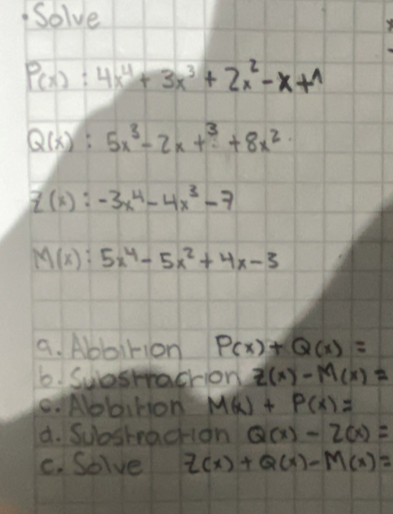 · Solve
P(x) : 4x⁴ + 3x³ + 2x² - x + 1
Q(x) : 5x³ - 2x + 3 + 8x²
Z(x) : -3x⁴ - 4x³ - 7
M(x) : 5x⁴ - 5x² + 4x - 3
a. Abbirion P(x) + Q(x) =
b. Substraction Z(x) - M(x) =
c. Abbition M(x) + P(x) =
d. Substraction Q(x) - Z(x) =
c. Solve Z(x) + Q(x) - M(x) =